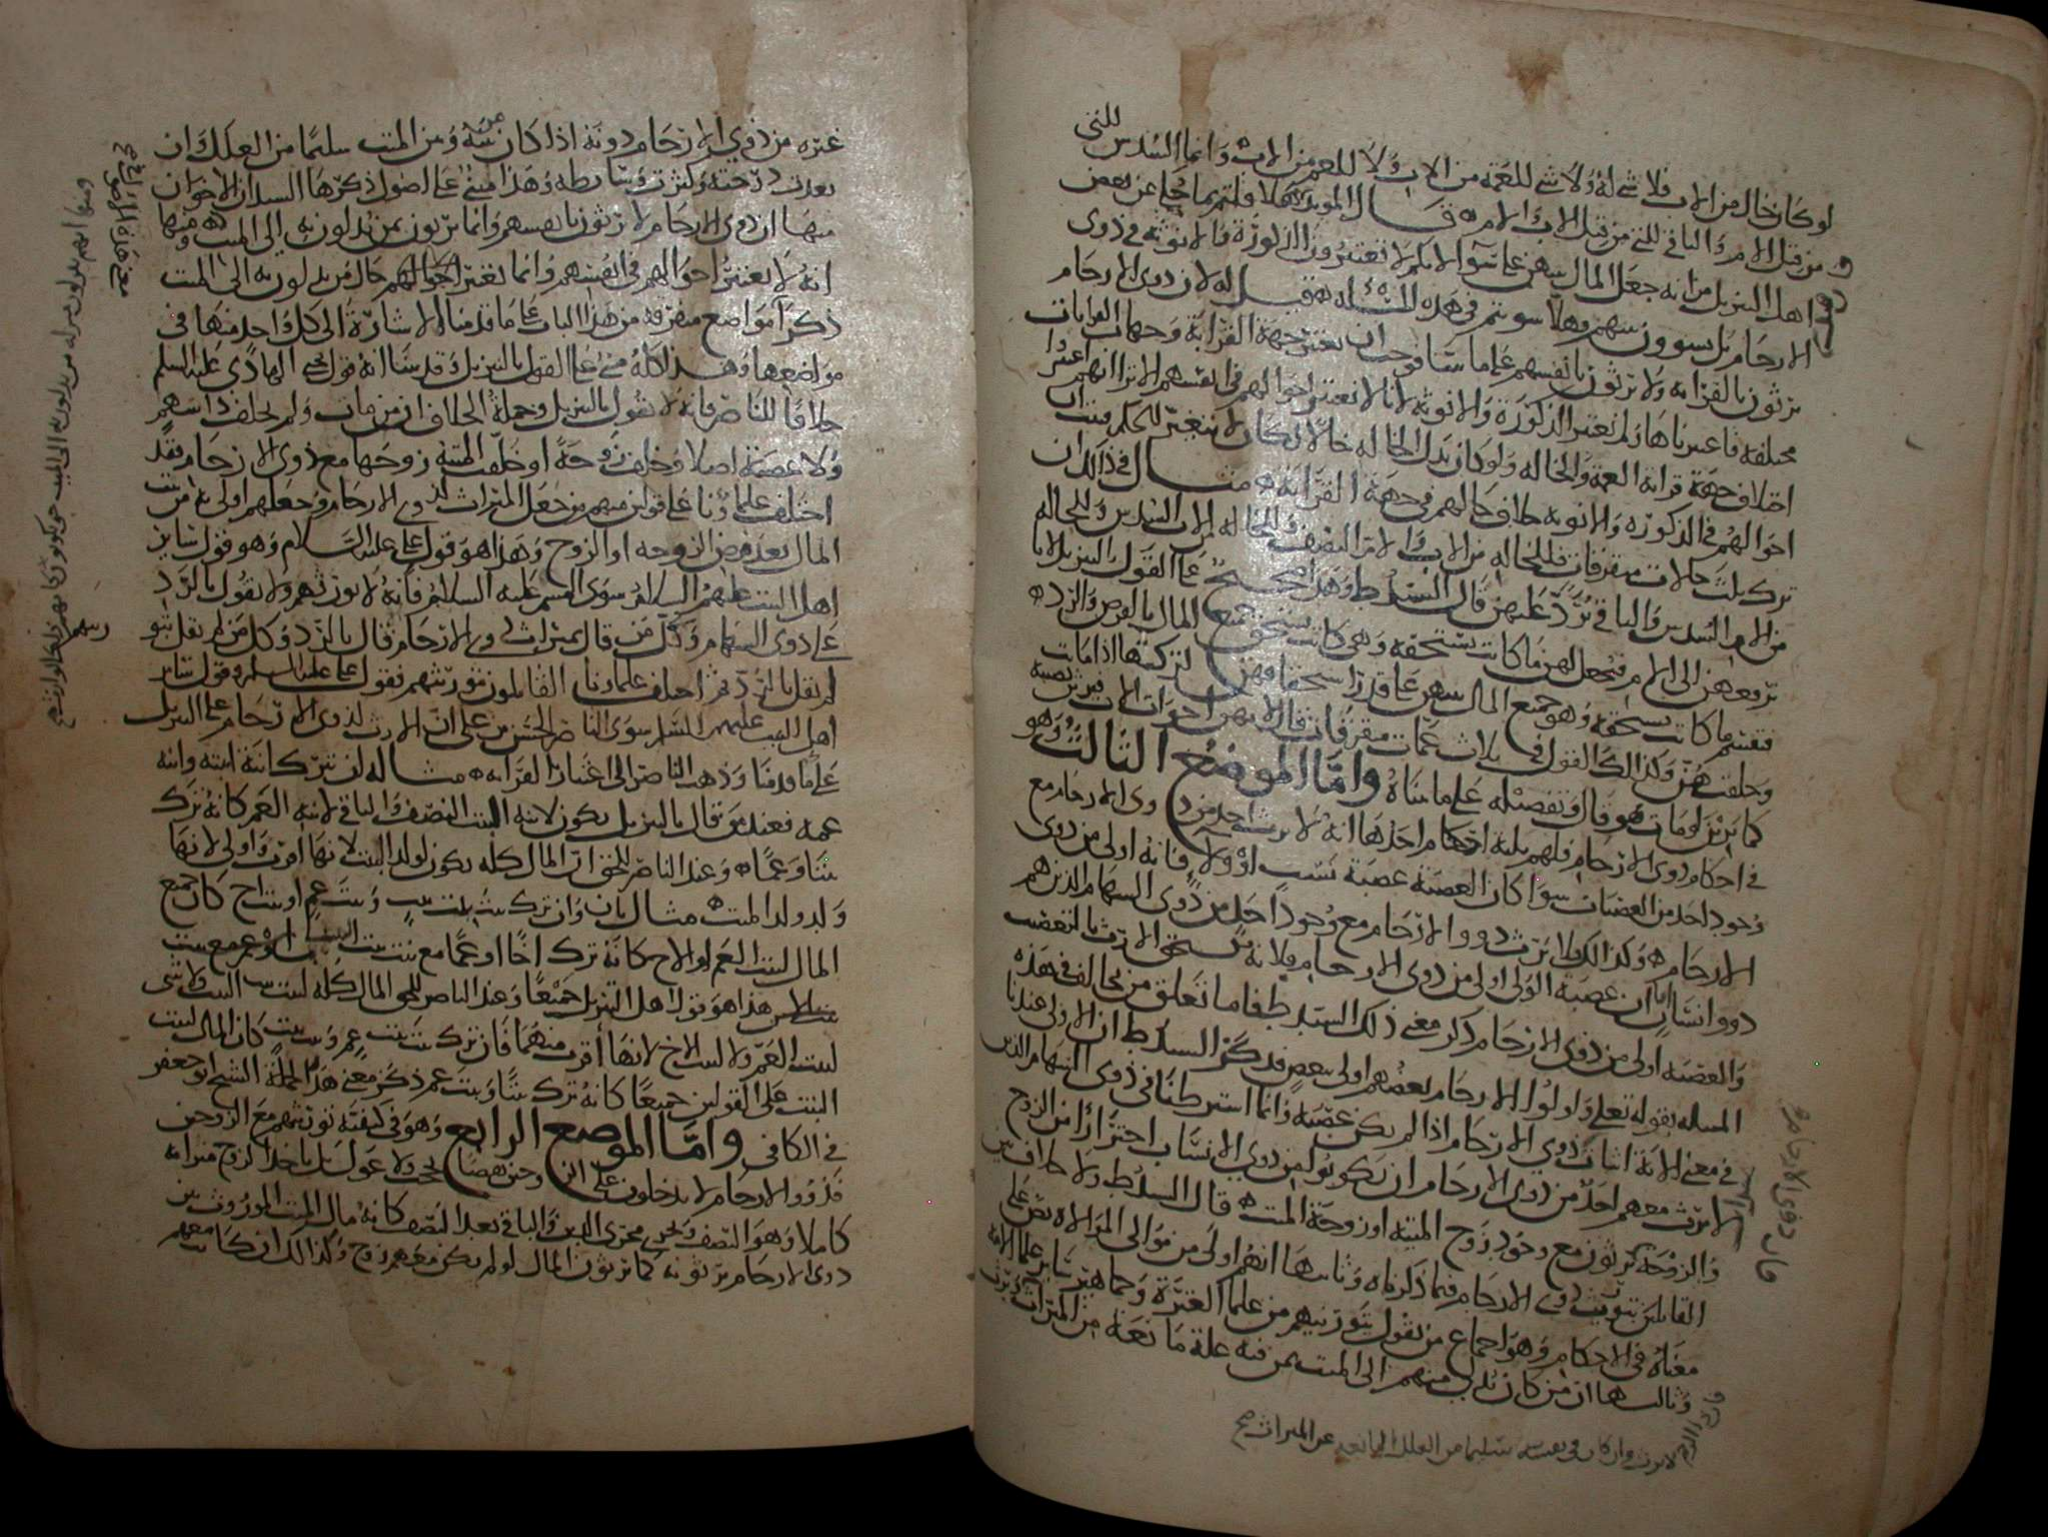 لو كان خال من الاب فلا شي له ولا شي للعمة من الاب ولا للعم من الاب وانما السدس للتي
من قبل الام والباقي للتي من قبل الاب والام قال المويد بالله هلا قلتم بما حكي عن بعض
اهل التنزيل من انه جعل المال بينهن على سوآ لانكم لا تعتبرون الذكورة والانوثة في ذوي
الارحام بل تسوون بينهم وهلا سويتم في هذه المسئلة قيل له لان ذوي الارحام
يرثون بالقرابة ولا يرثون بانفسهم على ما بينا فوجب ان نعتبر جهة القرابة وجهات القرابات
مختلفة فاعتبرناها ولم نعتبر الذكورة والانوثة لانا لا نعتبر احوالهم في انفسهم الا ترا انهم اعتبروا
اختلاف جهة قرابة العمة والخالة ولو كان بدل الخالة خالا لكان لا يتغير الحكم فبان
احوالهم في الذكورة والانوثة خلاف حالهم في جهة القرابة مثال في ذلك ان
ترك ثلث خالات متفرقات فللخالة من الاب والام النصف والخالة لاب السدس وللخالة
من الام السدس والباقي يرد عليهن قال السيد ط وهذا صحيح على القول بالتنزيل لانا
نرفعهن الى الام فنجعل لهن ما كانت تستحقه وهي كانت تستحق جميع المال بالفرض والرد
فنقسم ما كانت تستحقه وهو جميع المال بينهن على قدر استحقاقهن لتركتها اذا ماتت
وخلفتهن وكذلك القول في ثلاث عمات متفرقات قال لانهن اخوات الاب فيرثن نصيبه
كما يرثن لو مات هو قال وتفصيله على ما بيناه واما الموضع الثالث وهو
في احكام ذوي الارحام فلهم ثلثة احكام احدها انه لا يرث احد من ذوي الارحام مع
وجود احد من العصبات سوا كان العصبة عصبة نسب او ولآ فانه اولى من ذوي
الارحام وكذلك لا يرث ذووا الارحام مع وجود احد من ذوي السهام الذين هم
ذووا انساب لان عصبة الولي اولى من ذوي الارحام فلانه يستحق الارث بالتعصيب
والعصبة اولى من ذوي الارحام ذكر معنى ذلك السيد ط فاما تعلق من يخالف في هذه
المسله بقوله تعلى واولوا الارحام بعضهم اولى ببعض فذكر السيد ط ان الاولى عندنا
في معنى الاية اثبات ذوي الارحام اذا لم يكن عصبة وانما اشترطنا في ذوي السهام الذين
لا يرث معهم احد من ذوي الارحام ان يكونوا من ذوي الانساب احترازا من الزوج
والزوجة يرثون مع وجود زوج الميتة او زوجة الميت قال السيد ط ولا خلاف بين
القائلين بتوريث ذوي الارحام فيما ذكرناه وثانيها انهم اولى من موالي الموالاه نص على
معناه في الاحكام وهو اجماع من يقول بتوريثهم من علما العترة وجماهير سائر علما الامة
وثالثها ان من كان يدلي منهم الى الميت بمن فيه علة مانعة من الميراث
لا يرث وان كان في نفسه سليما من العلل المانعه عن الميراث صح
مال ذوي الارحام
غيره من ذوي الارحام دونه اذا كان بينه وبين الميت سليما من العلل وان
بعدت درجته وكثرت وسايطه وهذا مبني على اصول ذكرها السيدان الاخوان
منها ان ذوي الارحام لا يرثون بانفسهم وانما يرثون بمن يدلون به الى الميت ومنها
انه لا يعتبر احوالهم في انفسهم وانما تعتبر احوالهم حال من يدلون به الى الميت
ذكرا مواضع متفرقة من هذا الباب على ما قدمنا الاشارة الى كل واحد منها في
مواضعها وهذا كله مبني على القول بالتنزيل وقد بينا انه قول يحيى الهادي عليه السلم
خلافا للناصر فانه لا يقول بالتنزيل وجملة الخلاف ان من مات ولم يخلف ذا سهم
ولا عصبة اصلا وخلف زوجة او خلفت الميتة زوجها مع ذوي الارحام فقد
اختلف علماؤنا على قولين منهم من جعل الميراث لذوي الارحام وجعلهم اولى به من بيت
المال بعد فرض الزوجة او الزوج وهذا هو قول علي عليه السلام وهو قول سائر
اهل البيت عليهم السلام سوى القسم عليه السلام فانه لا يورثهم ولا يقول بالرد
على ذوي السهام وكل من قال بميراث ذوي الارحام قال بالرد وكل من لم يقل بتوريثهم
لم يقل بالرد ثم اختلف علماونا القايلون بتوريثهم فقول علي عليه السلم وقول سائر
اهل البيت عليهم السلم سوى الناصر الحسن بن علي ان الارث لذوي الارحام على التنزيل
على ما قدمنا وذهب الناصر الى اعتبار القرابة مثاله ان تترك ابنة ابنته وابنة
عمه فعند من قال بالتنزيل يكون لابنة البنت النصف والباقي لابنة العم كانه ترك
بنتا وعما وعند الناصر للحق ان المال كله يكون لولد البنت لانها اقرب واولى لانها
ولد ولد الميت مثال ثان وان ترك بنت بنت بنت وبنت عم او بنت اخ كان جميع
المال لبنت العم او الاخ كانه ترك اخا او عما مع بنت بنت البنت
هذا هو قول اهل التنزيل جميعا وعند الناصر للحق المال كله لبنت بنت البنت ولا شي
لبنت العم ولا لبنت الاخ لانها اقرب منهما فان ترك بنت بنت عم وبنت بنت كان المال لبنت
البنت على القولين جميعا كانه ترك بنتا وبنت عم ذكر معنى هذه الجملة الشيخ ابو جعفر
في الكافي واما الموضع الرابع وهو في كيفية توريثهم مع الزوجين
فذووا الارحام لا يدخلون على الزوجين نقصا بحجب ولا عول بل ياخذ الزوج ميراثه
كاملا وهو النصف ويجري مجرى الدين والباقي بعد النصف كانه مال الميت الموروث بين
ذوي الارحام يرثونه كما يرثون المال لو لم يكن معهم زوج وكذلك ان كانت معهم